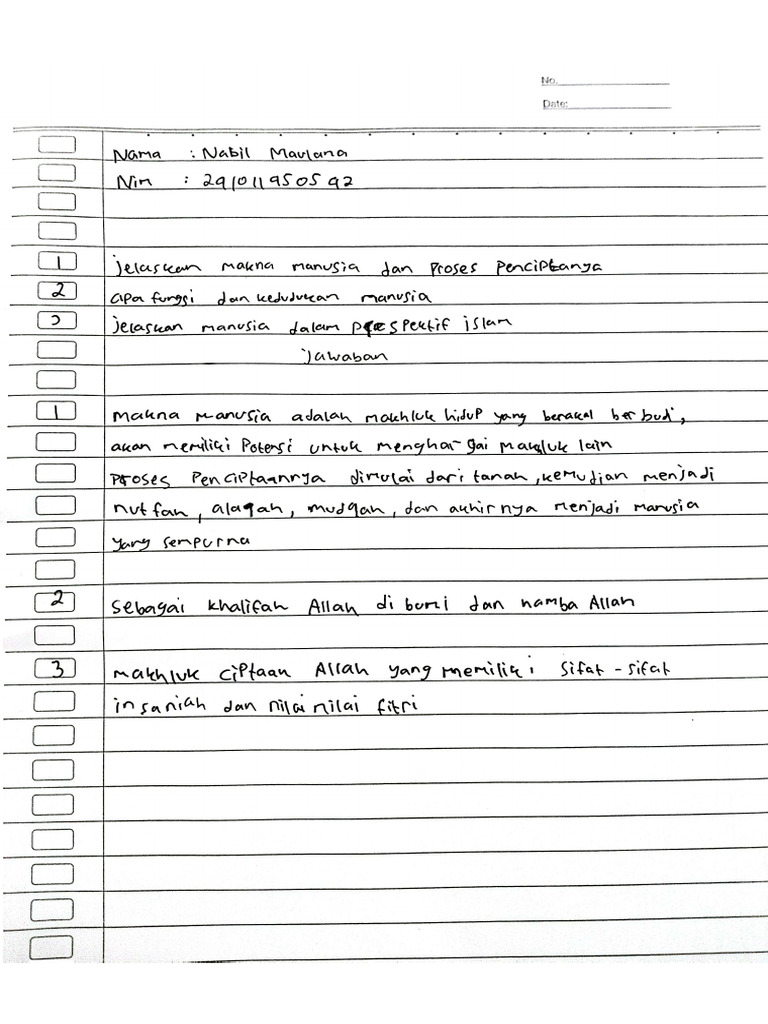 No.
Date:
Nama : Nabil Maulana
Nim : 29101195 05 92
1 jelaskan makna manusia dan proses penciptanya
2 apa fungsi dan kedudukan manusia
3 jelaskan manusia dalam prespektif islam
jawaban
1 makna manusia adalah makhluk hidup yang berakal berbudi,
akan memiliki potensi untuk menghargai makhluk lain
proses penciptaannya dimulai dari tanah, kemudian menjadi
nutfah, alaqah, mudgah, dan akhirnya menjadi manusia
yang sempurna
2 sebagai khalifah Allah di bumi dan hamba Allah
3 makhluk ciptaan Allah yang memiliki sifat-sifat
insaniah dan nilai nilai fitri